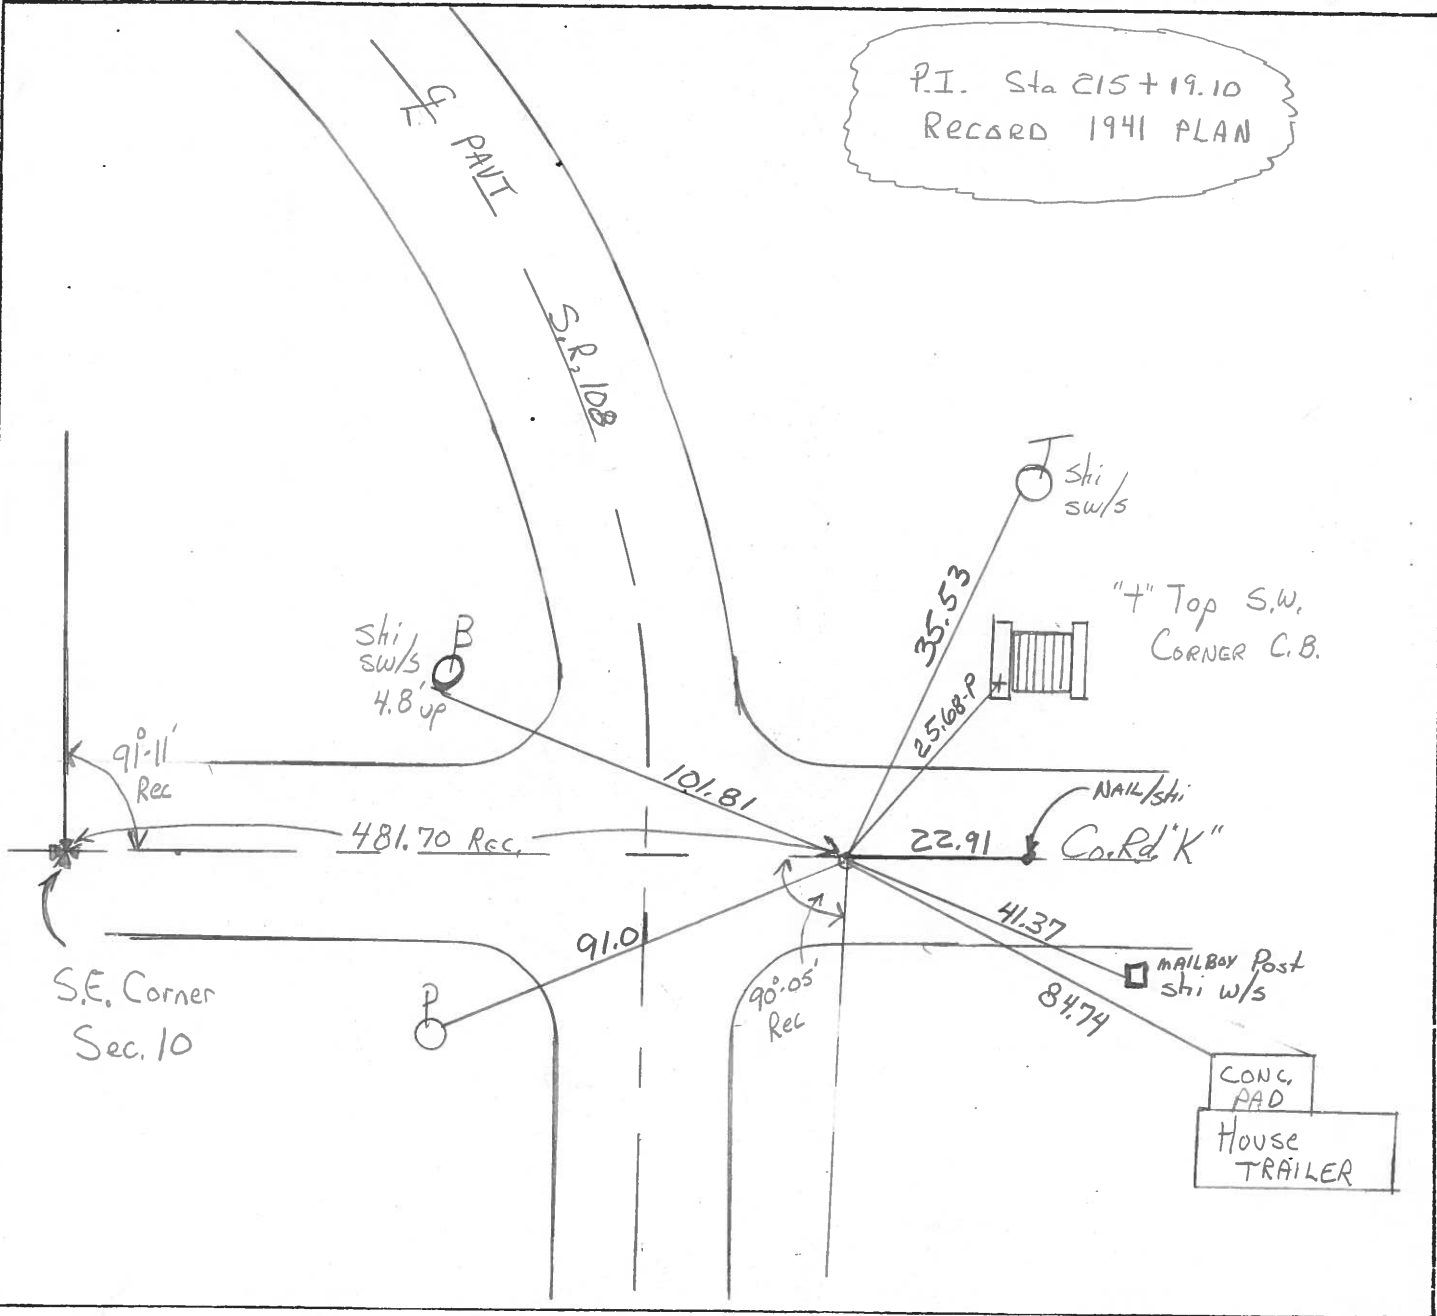 P.I. Sta 215+19.10
RECORD 1941 PLAN
℄ PAVT
S.R. 108
T
shi
sw/s
35.53
"+" Top S.W.
CORNER C.B.
25.68-P
B
shi
sw/s
4.8' up
101.81
91°-11'
Rec
481.70 Rec.
22.91
NAIL/shi
Co. Rd. "K"
41.37
MAILBOX Post
shi w/s
84.74
91.01
P
90°-05'
Rec
S.E. Corner
Sec. 10
CONC.
PAD
House
TRAILER